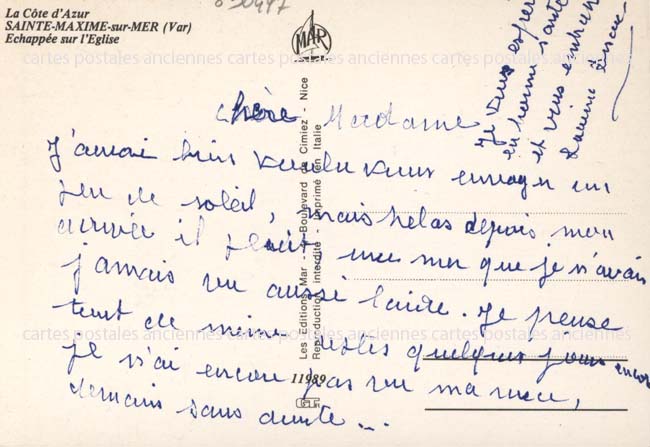 La Côte d'Azur
SAINTE-MAXIME-sur-MER (Var)
Echappée sur l'Eglise
MAR
Chère Madame
J'aurai bien voulu vous envoyer un
peu de soleil, mais helas depuis mon
arrivée il pleut, une mer que je n'avais
jamais vu aussi laide. Je pense
tout de meme rester quelques jours encore
je n'ai encore pas vu ma niece,
demain sans doute...
Je vous espère
en bonne santé
et vous embrasse
Les Editions Mar - Boulevard de Cimiez - Nice
Reproduction interdite - Imprimé en Italie
11989
cartes postales anciennes cartes postales anciennes cartes postales anciennes
cartes postales anciennes cartes postales anciennes cartes postales anciennes